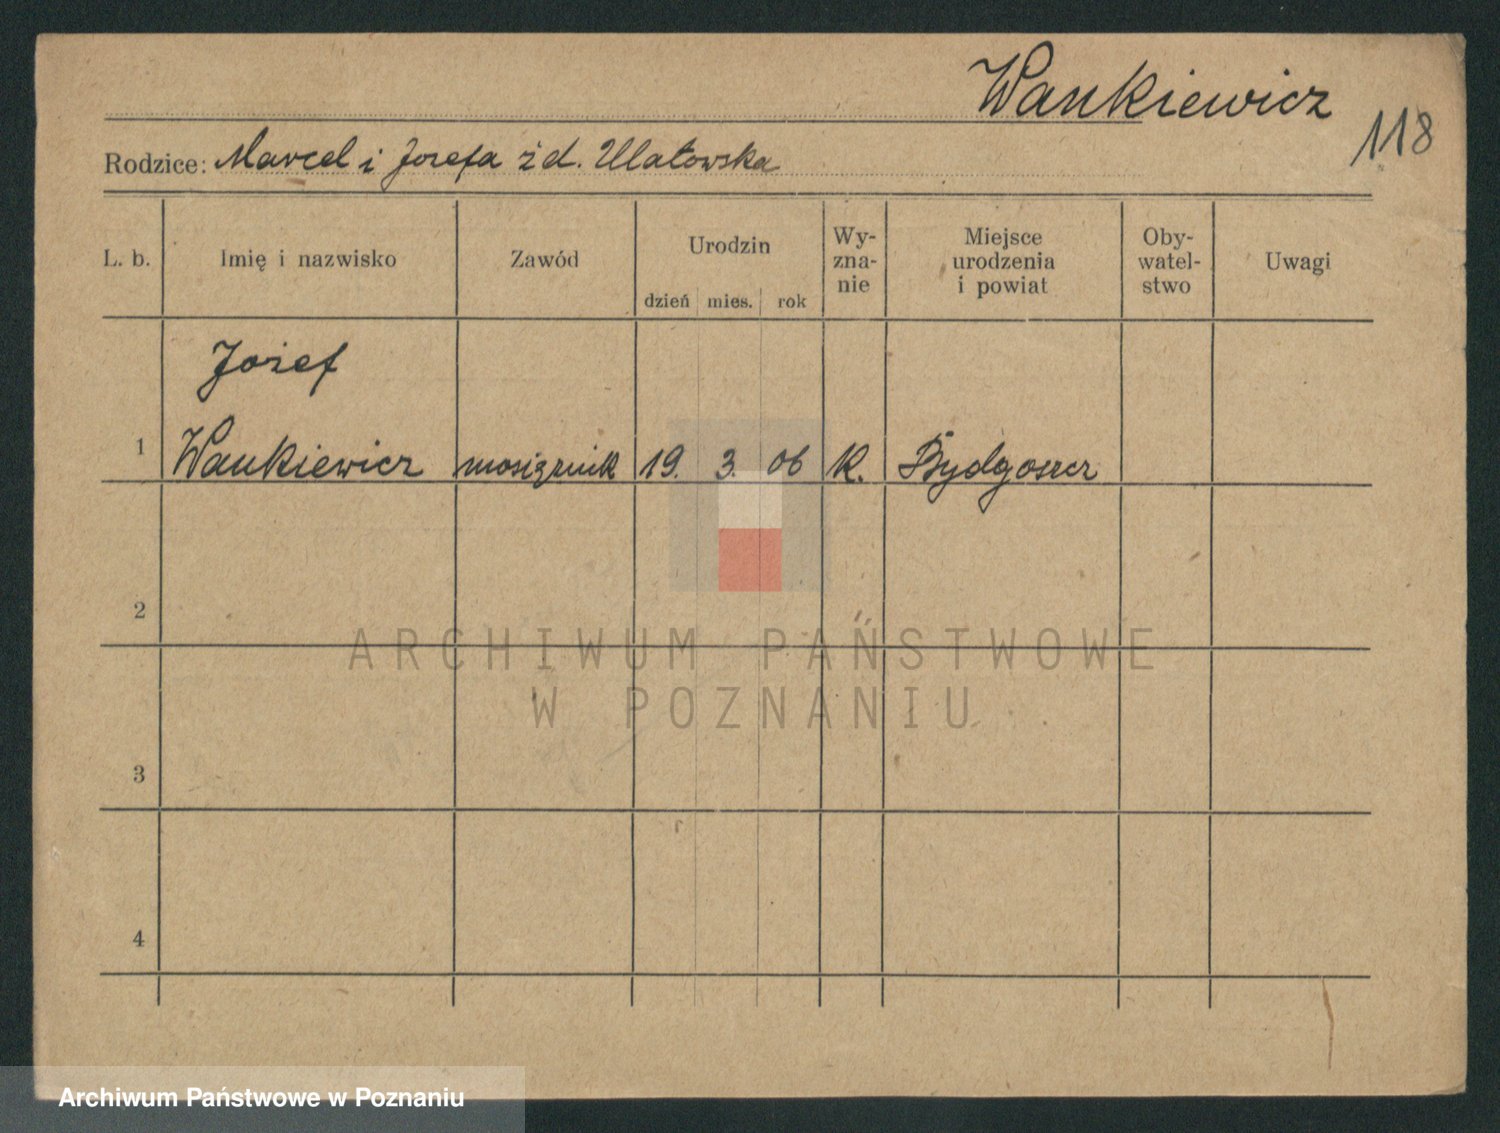 Wankiewicz
118
Rodzice: Marcel i Jozefa z d. Ulatowska
L. b.
Imię i nazwisko
Zawód
Urodzin
dzień mies. rok
Wy-
zna-
nie
Miejsce
urodzenia
i powiat
Oby-
watel-
stwo
Uwagi
Jozef
1 Wankiewicz mosiężnik 19. 3. 06 K. Bydgoszcz
2
ARCHIWUM PAŃSTWOWE
W POZNANIU
3
4
Archiwum Państwowe w Poznaniu